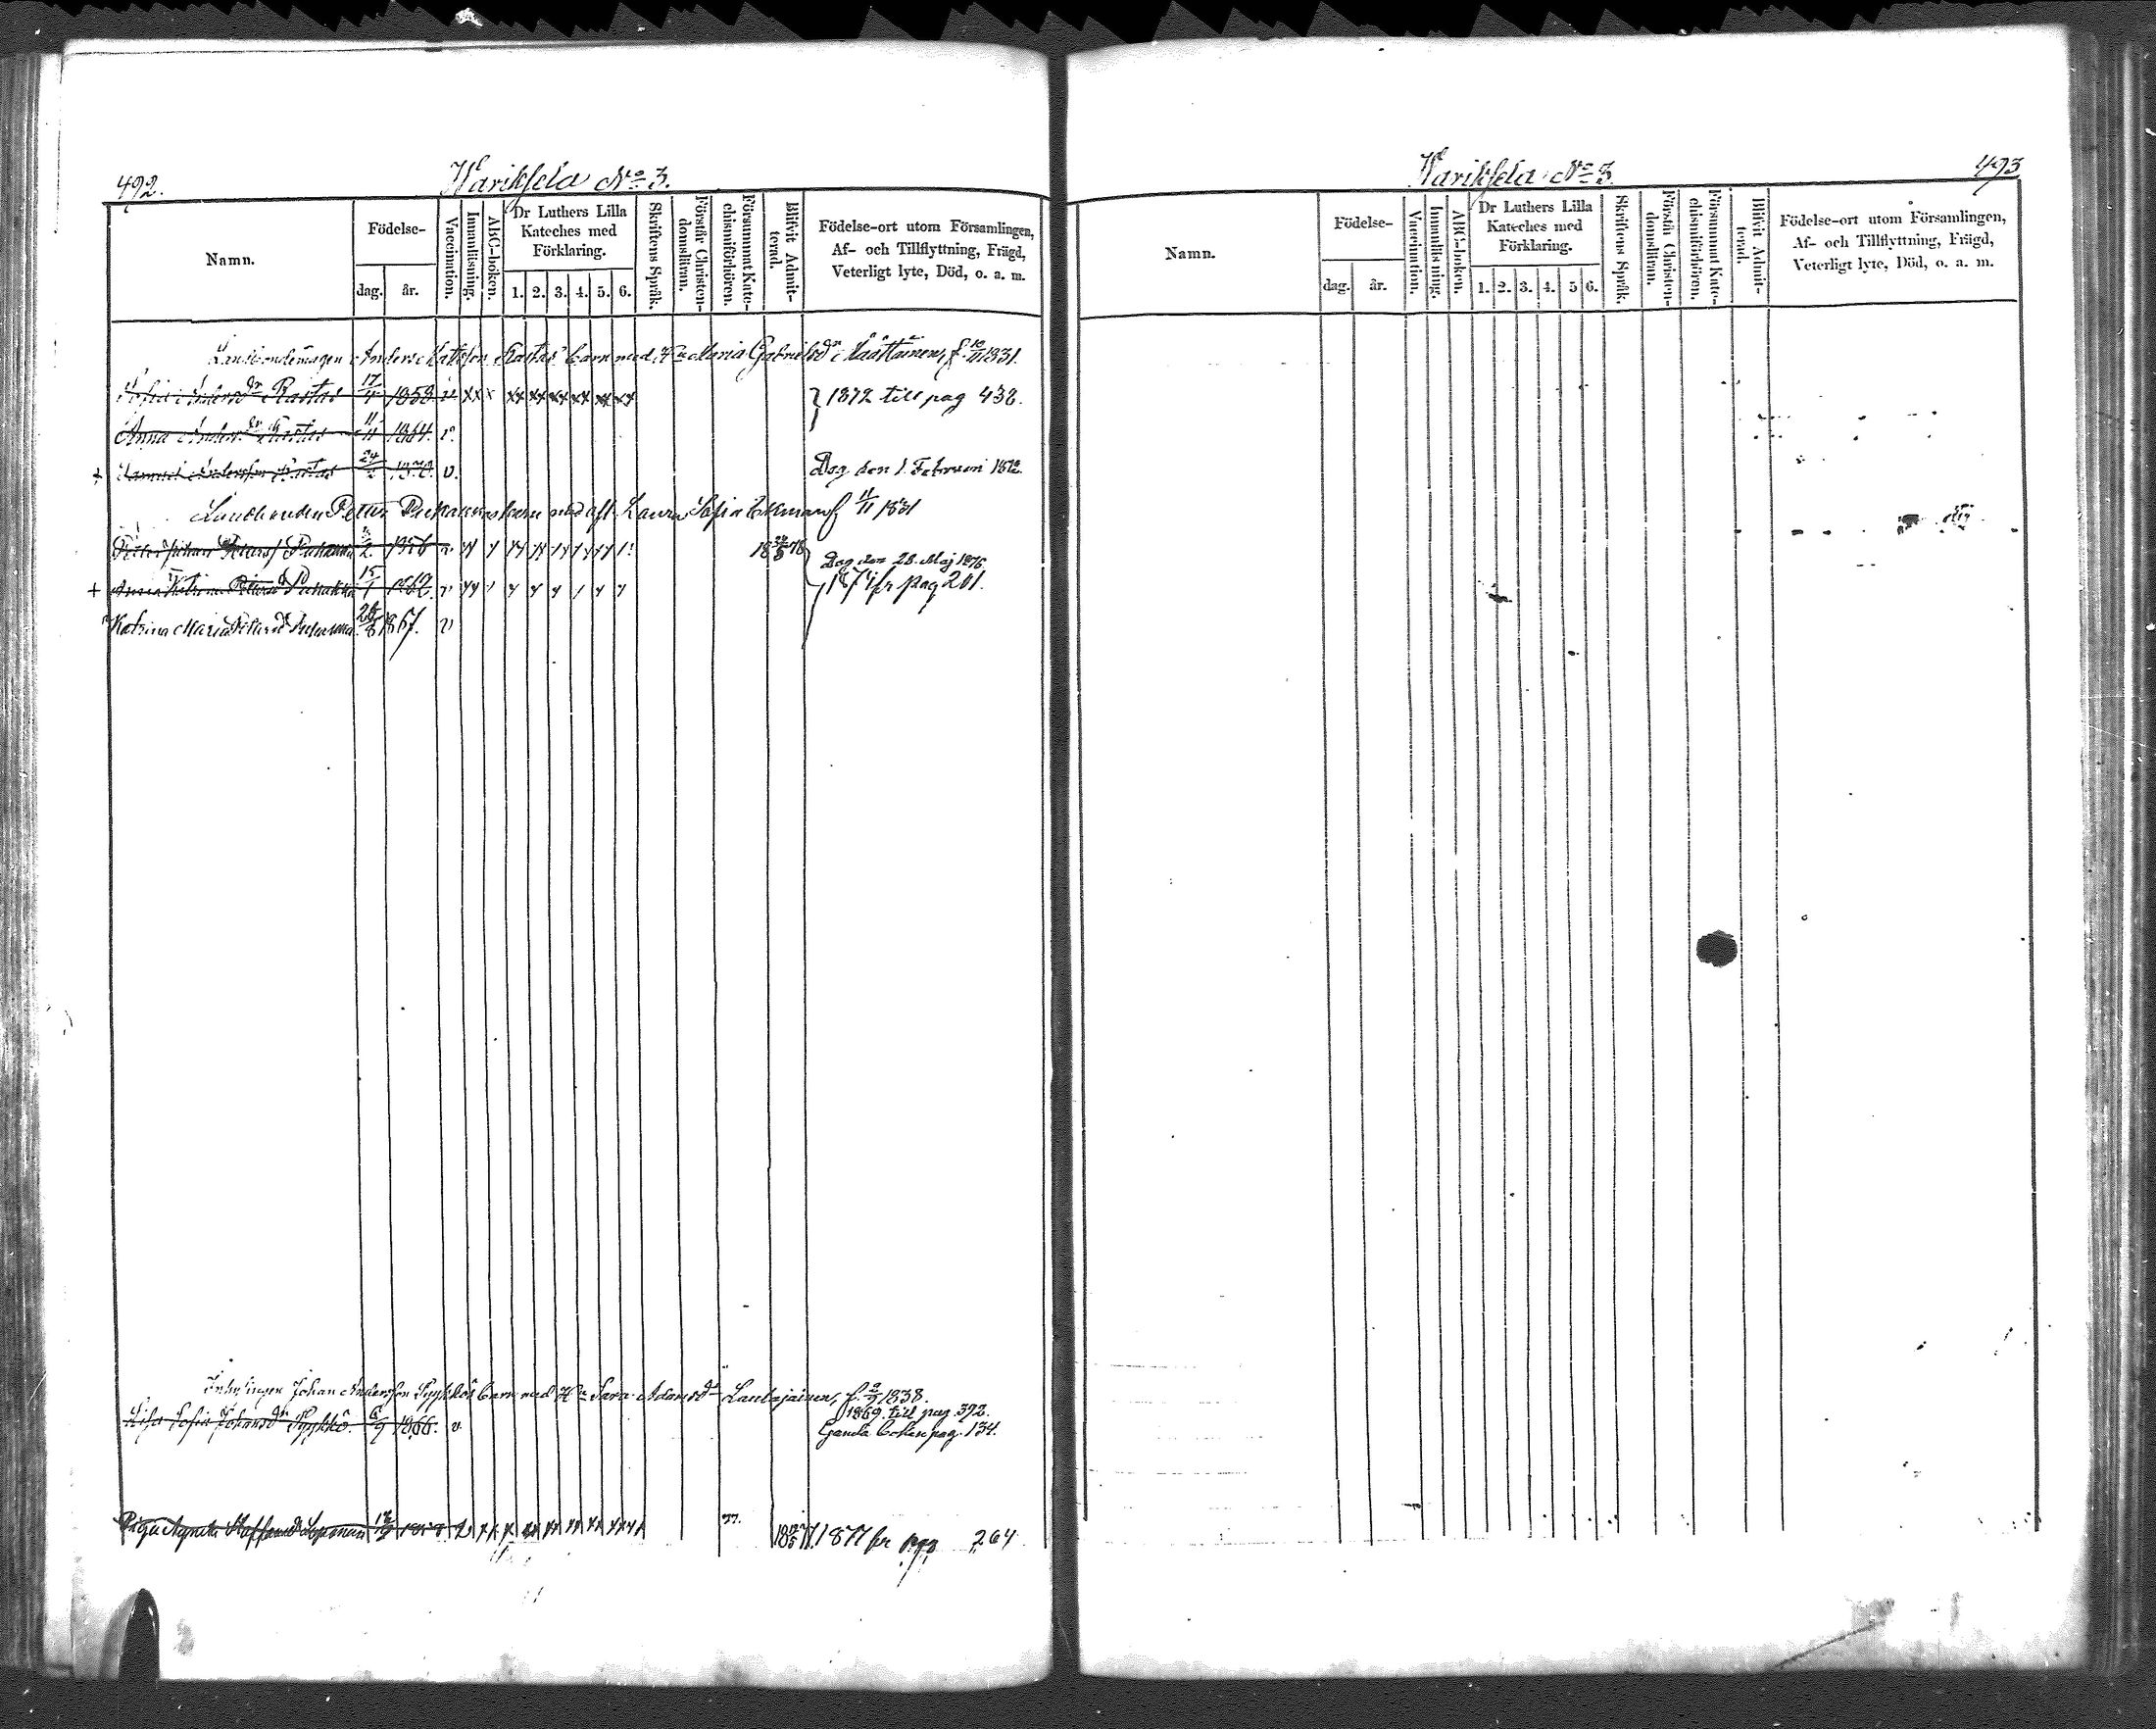 492.
Warikselä No 3.
Namn.
Födelse-
dag.
år.
Vaccination.
Innanläsning.
ABC-boken.
Dr Luthers Lilla
Kateches med
Förklaring.
1. 2. 3. 4. 5. 6.
Skriftens Språk.
Förstår Christen-
domsläran.
Försummat Kate-
chismiförhören.
Blifvit Admit-
terad.
Födelse-ort utom Församlingen,
Af- och Tillflyttning, Frägd,
Veterligt lyte, Död, o. a. m.
Anders Matsson Rastas' barn med Hu Maria Gabrielsdr f. 10/11 1831.
Sofia Andersdr Rastas 17/4 1858 v xx x xx xx xx xx xx xx } 1872 till pag 438.
Anna Andersdr Rastas 11/11 1864. v.
+ Andersson Rastas 24/ v. Dog den 1 Februari 1872.
Landbonden Petter barn med afl. Laura Sofia Ekman f 4/11 1831
Petter Johan Peterss 2 1856 v 18 78
Dog den 28. Maj 1876
+ Anna Katrina Petersdr 15/1 1862. v 187 fr pag 201.
Katrina Maria Petersdr 8 1867. v
Inhysingen Johan Andersson Pyykkös barn med Hu Sara Adamsdr Lautajainen, f. 2/9 1838.
1869 till pag 392.
Lisa Sofia Johansdr Pyykkö. 6/9 1866. v
Gamla boken pag. 134.
Pigan Agneta Staffansdr 77. 1877 fr pag 264
Warikselä No 3
493
Namn.
Födelse-
dag.
år.
Vaccination.
Innanläsning.
ABC-boken.
Dr Luthers Lilla
Kateches med
Förklaring.
1. 2. 3. 4. 5 6.
Skriftens Språk.
Förstår Christen-
domsläran.
Försummat Kate-
chismiförhören.
Blifvit Admit-
terad.
Födelse-ort utom Församlingen,
Af- och Tillflyttning, Frägd,
Veterligt lyte, Död, o. a. m.